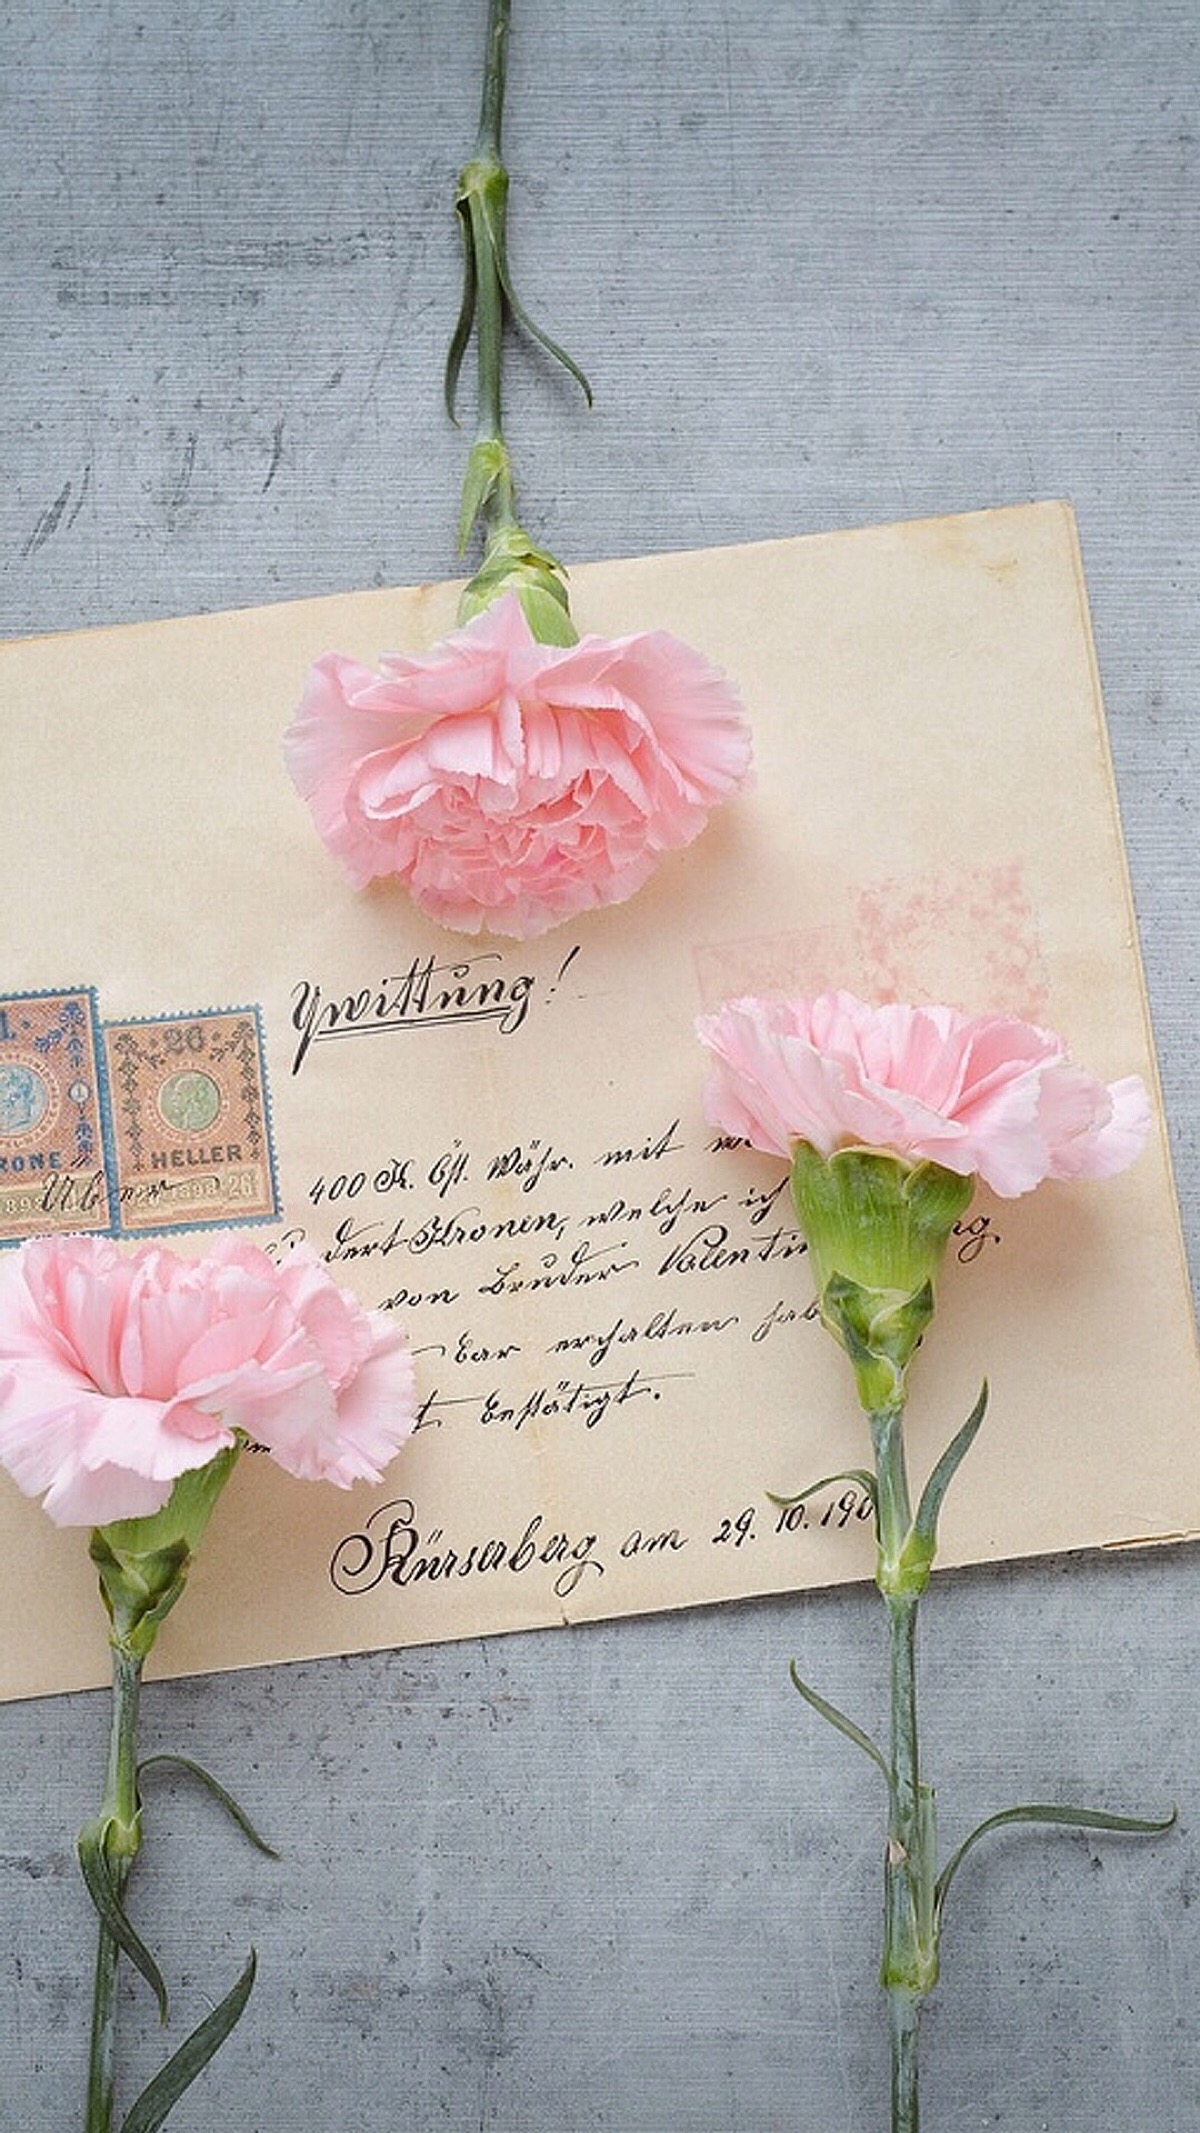 Quittung!
1
26
RONE HELLER
1898 1898 26
400 K. Öst. Währ. mit
dert Kronen, welche ich
von Bruder Valentin
bar erhalten hab
t bestätigt.
Kürserberg am 29. 10. 190